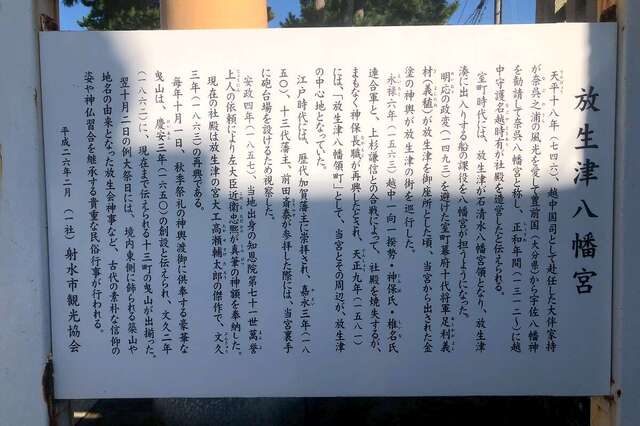 放生津八幡宮
天平十八年(七四六)、越中国司として赴任した大伴家持
が奈呉之浦の風光を愛して豊前国(大分県)から宇佐八幡神
を勧請して奈呉八幡宮と称し、正和年間(一三一二〜)に越
中守護名越時有が社殿を造営したと伝えられる。
室町時代には、放生津が石清水八幡宮領となり、放生津
湊に出入りする船の課役を八幡宮が担うようになった。
明応の政変(一四九三)を避けた室町幕府十代将軍足利義
材(義稙)が放生津を御座所とした頃、当宮から出された金
塗の神輿が放生津の街を巡行した。
永禄六年(一五六三)越中一向一揆勢・神保氏・椎名氏
連合軍と、上杉謙信との合戦によって、社殿を焼失するが、
まもなく神保長職が再興したとされ、天正九年(一五八一)
には、「放生津八幡領町」として、当宮とその周辺が、放生津
の中心地となっていた。
江戸時代には、歴代加賀藩主に崇拝され、嘉永三年(一八
五〇)、十三代藩主、前田斉泰が参拝した際には、当宮裏手
に砲台場を設けるため視察した。
安政四年(一八五七)、当地出身の知恩院第七十一世萬誉
上人の依頼により左大臣近衛忠熙が真筆の神額を奉納した。
現在の社殿は放生津の宮大工高瀬輔太郎の傑作で、文久
三年(一八六三)の再興である。
毎年十月一日、秋季祭礼の神輿渡御に供奉する豪華な
曳山は、慶安三年(一六五〇)の創設と伝えられ、文久二年
(一八六二)に、現在まで伝えられる十三町の曳山が出揃った。
翌十月二日の例大祭日には、境内東側に飾られる築山や
地名の由来となった放生会神事など、古代の素朴な信仰の
姿や神仏習合を継承する貴重な民俗行事が行われる。
平成二六年二月 (一社)射水市観光協会